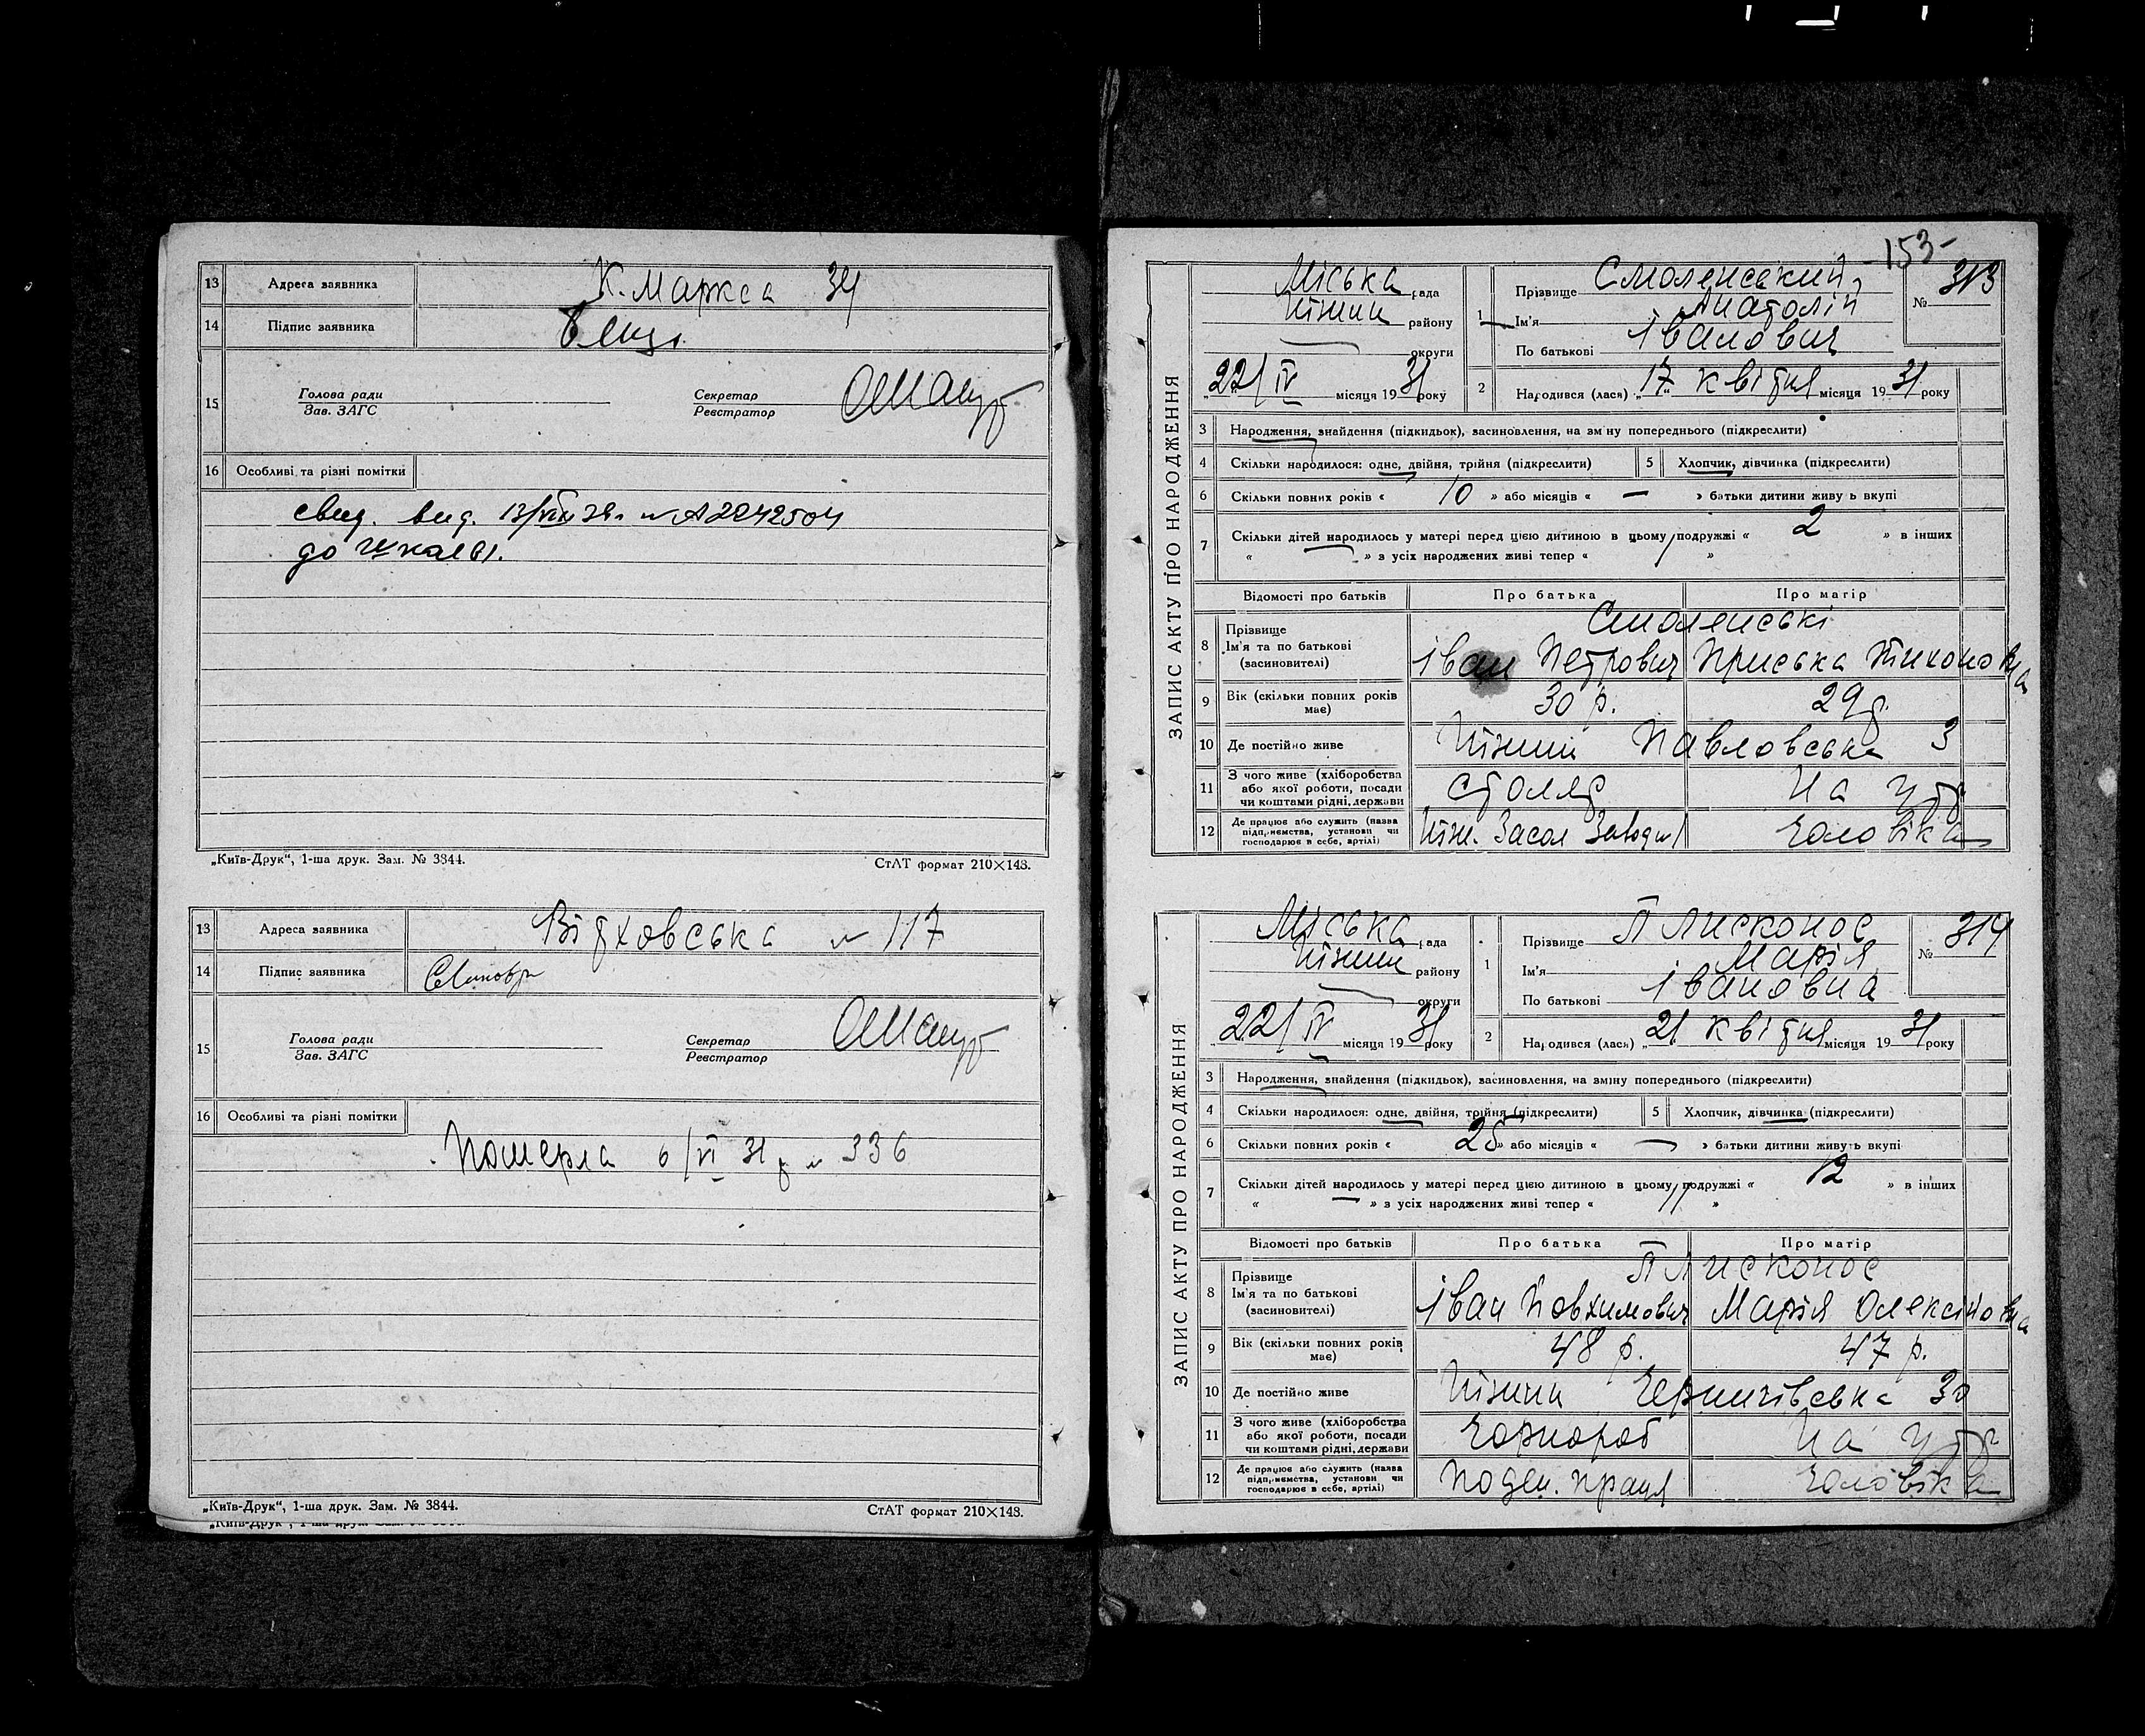 13 Адреса заявника К. Маркса 34
14 Підпис заявника
15 Голова ради Секретар
Зав. ЗАГС Реєстратор
16 Особливі та різні помітки
свид. вид. 13/VIII 38 № А2242504
до школи.
„Київ-Друк“, 1-ша друк. Зам. № 3844. СтАТ формат 210×148.
13 Адреса заявника № 117
14 Підпис заявника
15 Голова ради Секретар
Зав. ЗАГС Реєстратор
16 Особливі та різні помітки
Померла 6/VI 31 р № 336
„Київ-Друк“, 1-ша друк. Зам. № 3844. СтАТ формат 210×148.
-153-
ЗАПИС АКТУ ПРО НАРОДЖЕННЯ
Міська рада
Ніжин району
округи
22/IV місяця 1931 року
1 Прізвище Смоленський
Ім'я Анатолій
По батькові Іванович
№ 313
2 Народився (лася) „17 квітня місяця 1931 року
3 Народження, знайдення (підкидьок), засиновлення, на зміну попереднього (підкреслити)
4 Скільки народилося: одне, двійня, трійня (підкреслити) 5 Хлопчик, дівчинка (підкреслити)
6 Скільки повних років « 10 » або місяців « — » батьки дитини живуть вкупі
7 Скільки дітей народилось у матері перед цією дитиною в цьому подружжі « 2 » в інших
« — » з усіх народжених живі тепер « 1 »
Відомості про батьків Про батька Про матір
8 Прізвище Смоленські
Ім'я та по батькові Іван Петрович Приська Тихоновна
(засиновителі)
9 Вік (скільки повних років має) 30 р. 29 р.
10 Де постійно живе Ніжин Павловська 3
11 З чого живе (хліборобства столяр На утр
або якої роботи, посади
чи коштами рідні, держави
12 Де працює або служить (назва Ніж. Засол Завод чоловіка
підприємства, установи чи
господарює в себе, артілі)
ЗАПИС АКТУ ПРО НАРОДЖЕННЯ
Міська рада
Ніжин району
округи
22/IV місяця 1931 року
1 Прізвище Плисконос
Ім'я Марія
По батькові Івановна
№ 314
2 Народився (лася) „21 квітня місяця 1931 року
3 Народження, знайдення (підкидьок), засиновлення, на зміну попереднього (підкреслити)
4 Скільки народилося: одне, двійня, трійня (підкреслити) 5 Хлопчик, дівчинка (підкреслити)
6 Скільки повних років « 25 » або місяців « — » батьки дитини живуть вкупі
7 Скільки дітей народилось у матері перед цією дитиною в цьому подружжі « 12 » в інших
« — » з усіх народжених живі тепер « 11 »
Відомості про батьків Про батька Про матір
8 Прізвище Плисконос
Ім'я та по батькові Іван Марія Олексіївна
(засиновителі)
9 Вік (скільки повних років має) 48 р. 47 р.
10 Де постійно живе Ніжин Чернигівська 30
11 З чого живе (хліборобства Чорнороб На утр
або якої роботи, посади
чи коштами рідні, держави
12 Де працює або служить (назва Поден. праця чоловіка
підприємства, установи чи
господарює в себе, артілі)